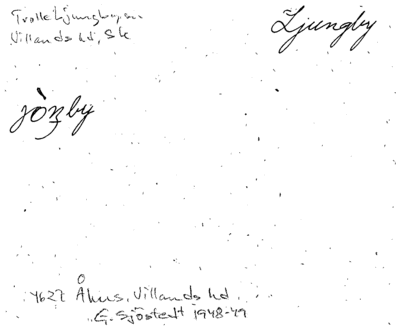 Trolle Ljungby, sn
Villands hd, Sk
Ljungby
jòn̥by
4627 Åhus, Villands hd.
G. Sjöstedt 1948-49